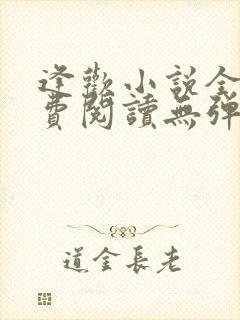 逢歡小說全
費閱讀無彈
道金長老